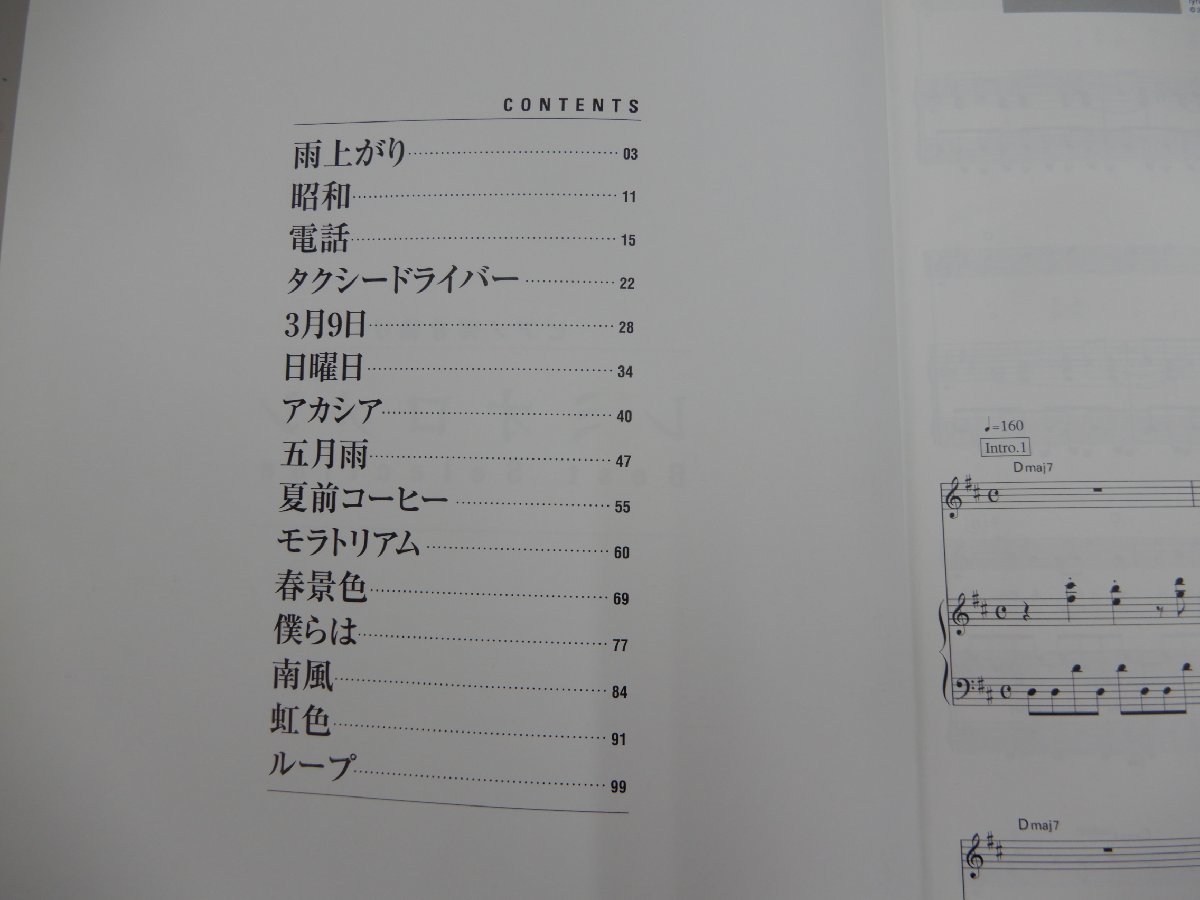 CONTENTS
雨上がり 03
昭和 11
電話 15
タクシードライバー 22
3月9日 28
日曜日 34
アカシア 40
五月雨 47
夏前コーヒー 55
モラトリアム 60
春景色 69
僕らは 77
南風 84
虹色 91
ループ 99
♩=160
Intro.1
Dmaj7
Dmaj7